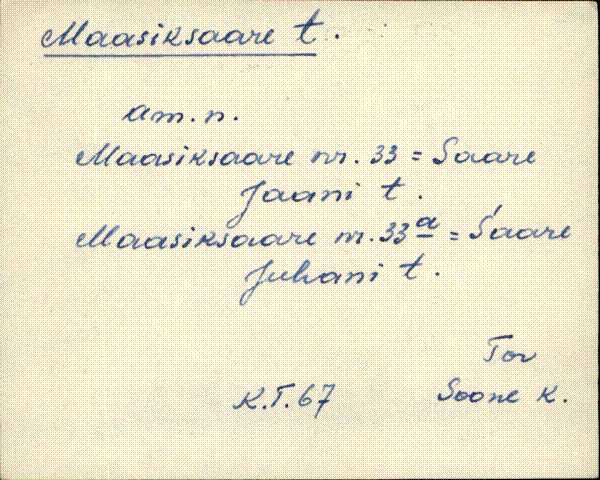 Maasiksaare t.
am. n.
Maasiksaare nr. 33 = Saare
Jaani t.
Maasiksaare nr. 33a = Saare
Juhani t.
Tor
Soone k.
K.T. 67